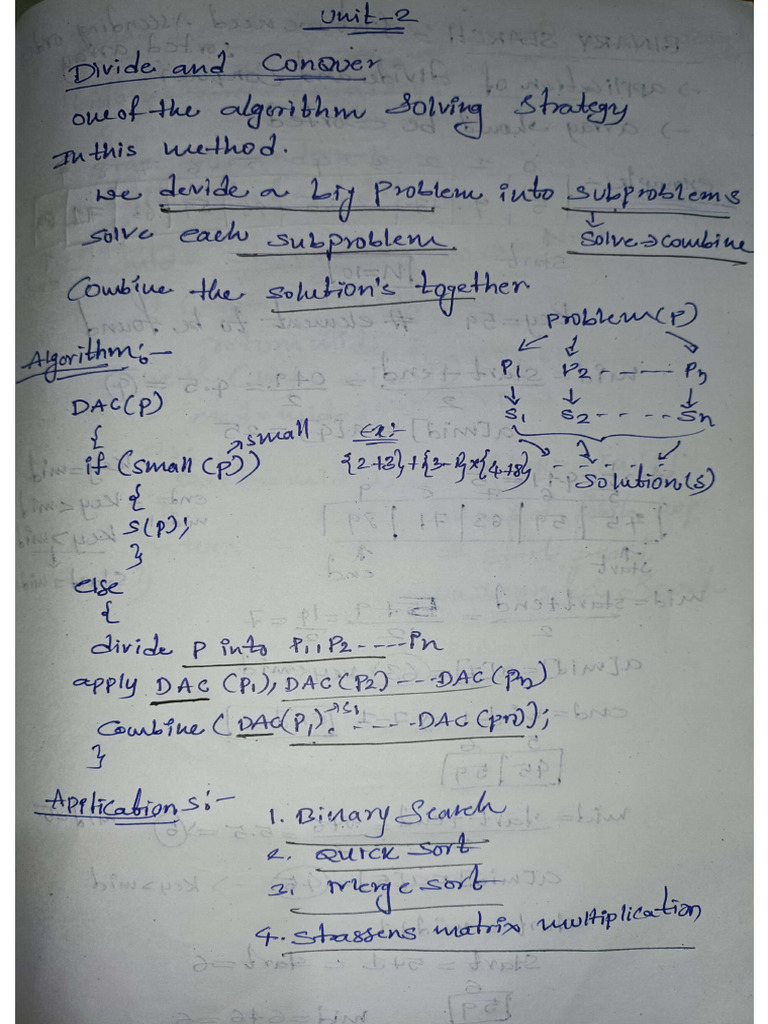 Unit-2
Divide and Conquer
one of the algorithm solving strategy
In this method.
we devide a big problem into subproblems
solve each subproblem. solve→combine
Combine the solution's together
Problem(P)
Algorithm:-
P1 P2 ------ Pn
DAC(P)
S1 S2 - - - - - Sn
{
small Ex:-
if (small (P))
{2+3}+{3-1}*{4+8} solution(s)
{
S(P);
}
else
{
divide P into P1, P2 ----- Pn
apply DAC (P1), DAC(P2) --- DAC(Pn)
Combine (DAC(P1) →S1 . ----- DAC(Pn));
}
Applications:-
1. Binary Search
2. Quick sort
3. Merge sort
4. Strassens matrix multiplication